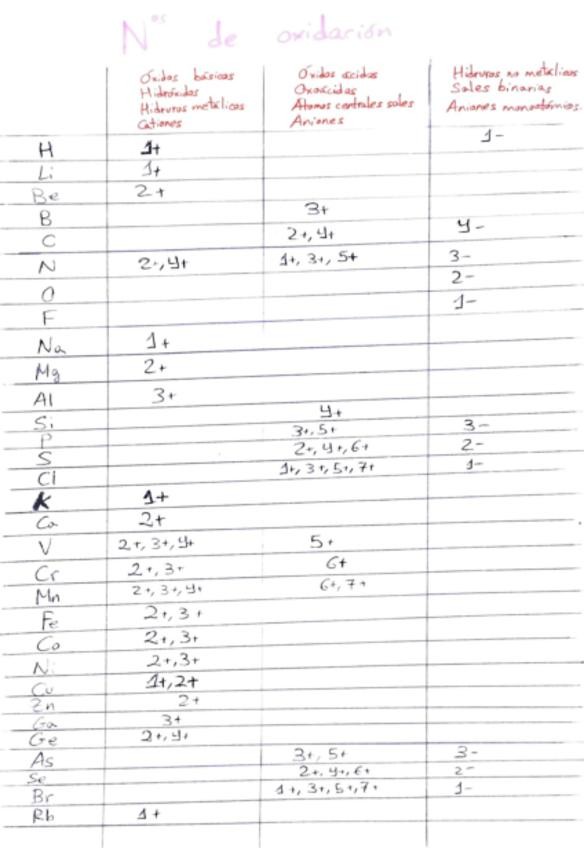 Nos de oxidación
Óxidos básicos
Hidróxidos
Hidruros metálicos
Cationes
Óxidos ácidos
Oxoácidos
Átomos centrales sales
Aniones
Hidruros no metálicos
Sales binarias
Aniones monoatómicos.
H 1+ 1-
Li 1+
Be 2+
B 3+
C 2+, 4+ 4-
N 2+, 4+ 1+, 3+, 5+ 3-
O 2-
F 1-
Na 1+
Mg 2+
Al 3+
Si 4+
P 3+, 5+ 3-
S 2+, 4+, 6+ 2-
Cl 1+, 3+, 5+, 7+ 1-
K 1+
Ca 2+
V 2+, 3+, 4+ 5+
Cr 2+, 3+ 6+
Mn 2+, 3+, 4+ 6+, 7+
Fe 2+, 3+
Co 2+, 3+
Ni 2+, 3+
Cu 1+, 2+
Zn 2+
Ga 3+
Ge 2+, 4+
As 3+, 5+ 3-
Se 2+, 4+, 6+ 2-
Br 1+, 3+, 5+, 7+ 1-
Rb 1+